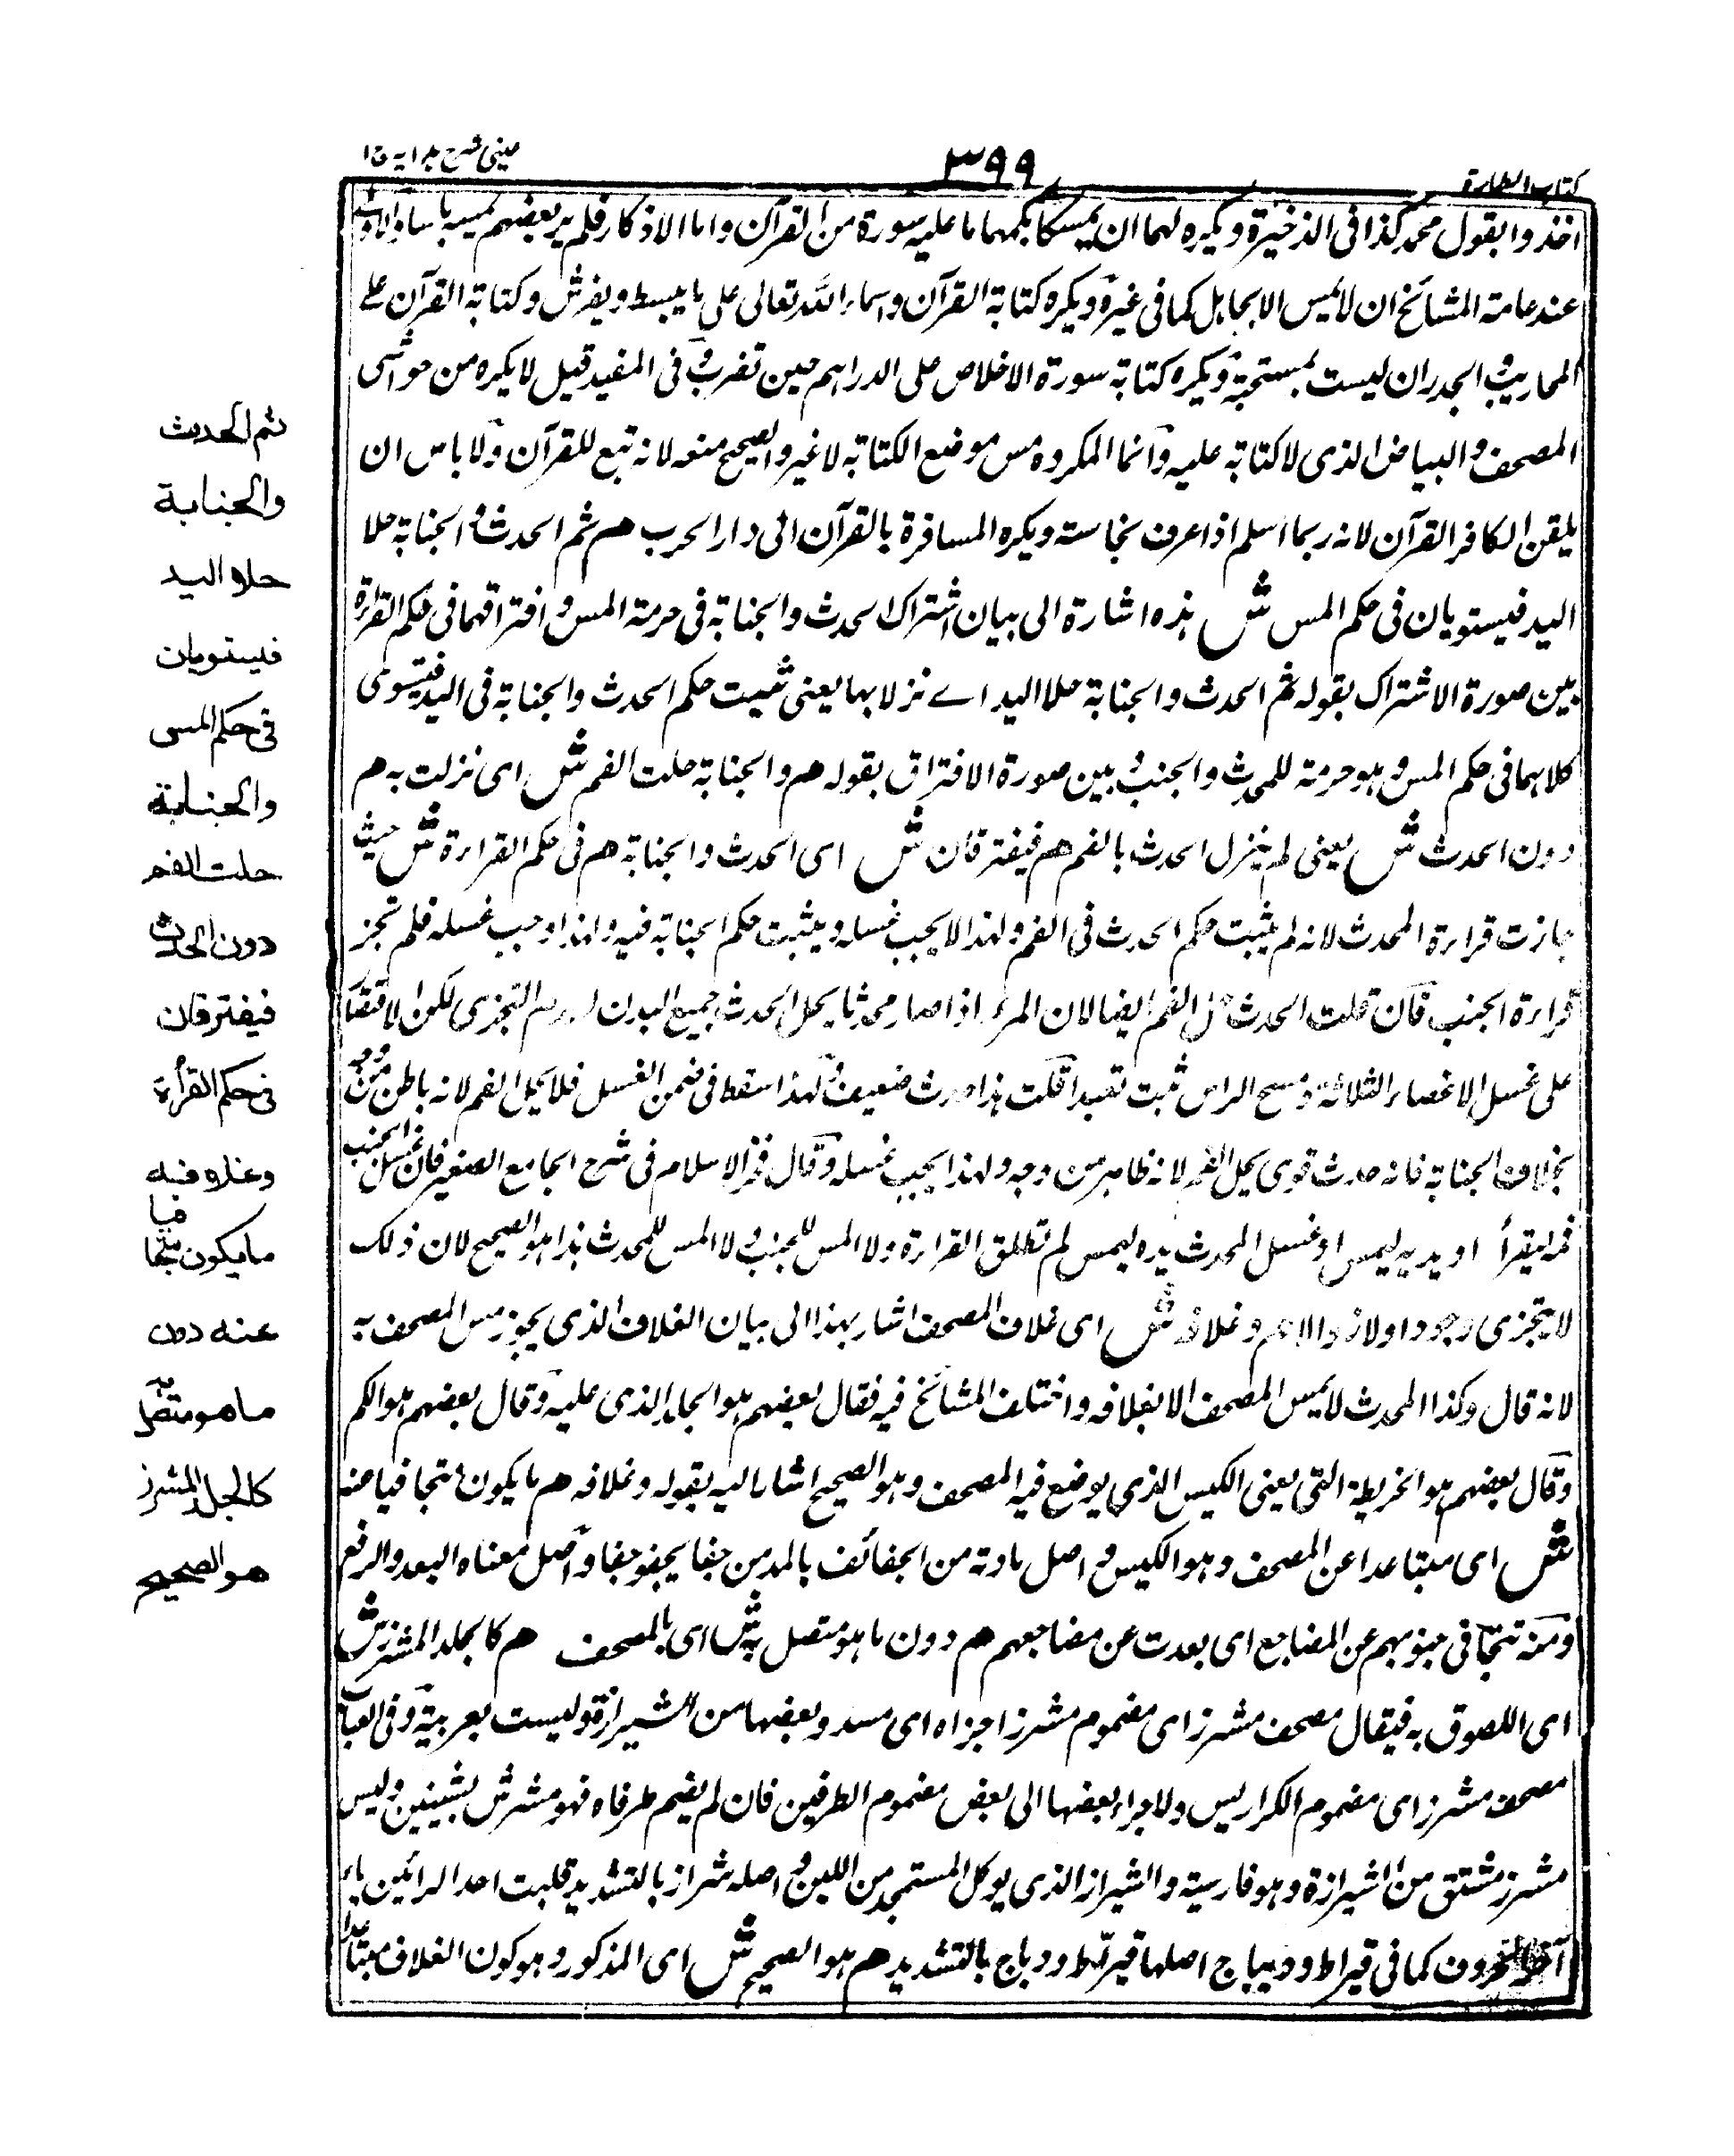 كتاب الطهارة
٣٩٩
عينى شرح هدايه ج ا
اخذوا بقول محمد كذا فى الذخيرة ويكره لهما ان يمسكا بكمهما ما عليه سورة من القرآن واما الاذكار فلم ير بعضهم بمسه باسا والاولى
عند عامة المشائخ ان لا يمس الا بحائل كما فى غيره ويكره كتابة القرآن واسماء الله تعالى على ما يبسط ويفرش وكتابة القرآن على
المحاريب والجدران ليست بمستحبة ويكره كتابة سورة الاخلاص على الدراهم حين تضرب وفى المفيد قيل لا يكره مس حواشى
المصحف والبياض الذى لا كتابة عليه وانما المكروه مس موضع الكتابة لا غير والصحيح منعه لانه تبع للقرآن ولا باس ان
يلقن الكافر القرآن لانه ربما اسلم اذا عرف نجاسته ويكره المسافرة بالقرآن الى دار الحرب هم ثم الحدث والجنابة حلا
اليد فيستويان فى حكم المس ش هذه اشارة الى بيان اشتراك الحدث والجنابة فى حرمة المس وافتراقهما فى حكم القراءة
بين صورة الاشتراك بقوله ثم الحدث والجنابة حلا اليد اے نزلا بها يعنى ثبت حكم الحدث والجنابة فى اليد فيستوى
كلاهما فى حكم المس وهو حرمة للمحدث والجنب وبين صورة الافتراق بقوله هم والجنابة حلت الفم ش اى نزلت به هم
دون الحدث ش يعنى لم ينزل الحدث بالفم هم فيفترقان ش اى الحدث والجنابة هم فى حكم القراءة ش حيث
جازت قراءة المحدث لانه لم يثبت حكم الحدث فى الفم ولهذا لا يجب غسله ويثبت حكم الجنابة فيه ولهذا وجب غسله فلم تجز
قراءة الجنب فان قلت الحدث حل الفم ايضا لان المرء اذا صار محدثا يحل الحدث جميع البدن لعدم التجزى لكن الاقتصار
على غسل الاعضاء الثلاثة ومسح الراس ثبت تعبدا قلت هذا حدث ضعيف ولهذا سقط فى ضمن الغسل فلا يحل الفم لانه باطن من وجه
بخلاف الجنابة فانه حدث قوى يحل الفم لانه ظاهر من وجه ولهذا يجب غسله وقال فخر الاسلام فى شرح الجامع الصغير فان غسل الجنب
فمه ليقرأ او يديه ليمس او غسل المحدث يده ليمس لم تطلق القراءة ولا المس للجنب ولا المس للمحدث هذا هو الصحيح لان ذلك
لا يتجزى وجودا ولا زوالا هم وغلافه ش اى غلاف المصحف اشار بهذا الى بيان الغلاف الذى يجوز مس المصحف به
لانه قال وكذا المحدث لا يمس المصحف الا بغلافه واختلف المشائخ فيه فقال بعضهم هو الجلد الذى عليه وقال بعضهم هو الكم
وقال بعضهم هو الخريطة التى يعنى الكيس الذى يوضع فيه المصحف وهو الصحيح اشار اليه بقوله وغلافه هم ما يكون متجافيا عنه
ش اى متباعدا عن المصحف وهو الكيس واصل مادته من الجفا بالمد من جفا يجفو جفا واصل معناه البعد والرفع
ومنه تتجافى جنوبهم عن المضاجع اى بعدت عن مضاجعهم هم دون ما هو متصل به ش اى بالمصحف هم كالجلد المشرز ش
اى اللصوق به فيقال مصحف مشرز اى مضموم مشرز اجزاه اى مسدد بعضها من الشيرازة وليست بعربية وفى العباب
مصحف مشرز اى مضموم الكراريس والاجزاء بعضها الى بعض مضموم الطرفين فان لم يضم طرفاه فهو مشرش بشينين وليس
مشرز مشتق من الشيرازة وهو فارسية والشيراز الذى يوكل المستمجد من اللبن واصله شراز بالتشديد قلبت احد الرائين ياء
كما فى قيراط وديباج اصلها قراط ودباج بالتشديد هم هو الصحيح ش اى المذكور وهو كون الغلاف متباعدا
ثم الحدث
والجنابة
حلا اليد
فيستويان
فى حكم المس
والجنابة
حلت الفم
دون الحدث
فيفترقان
فى حكم القرأة
وغلافه
ما يكون متجافيا
عنه دون
ما هو متصل به
كالجلد المشرز
هو الصحيح